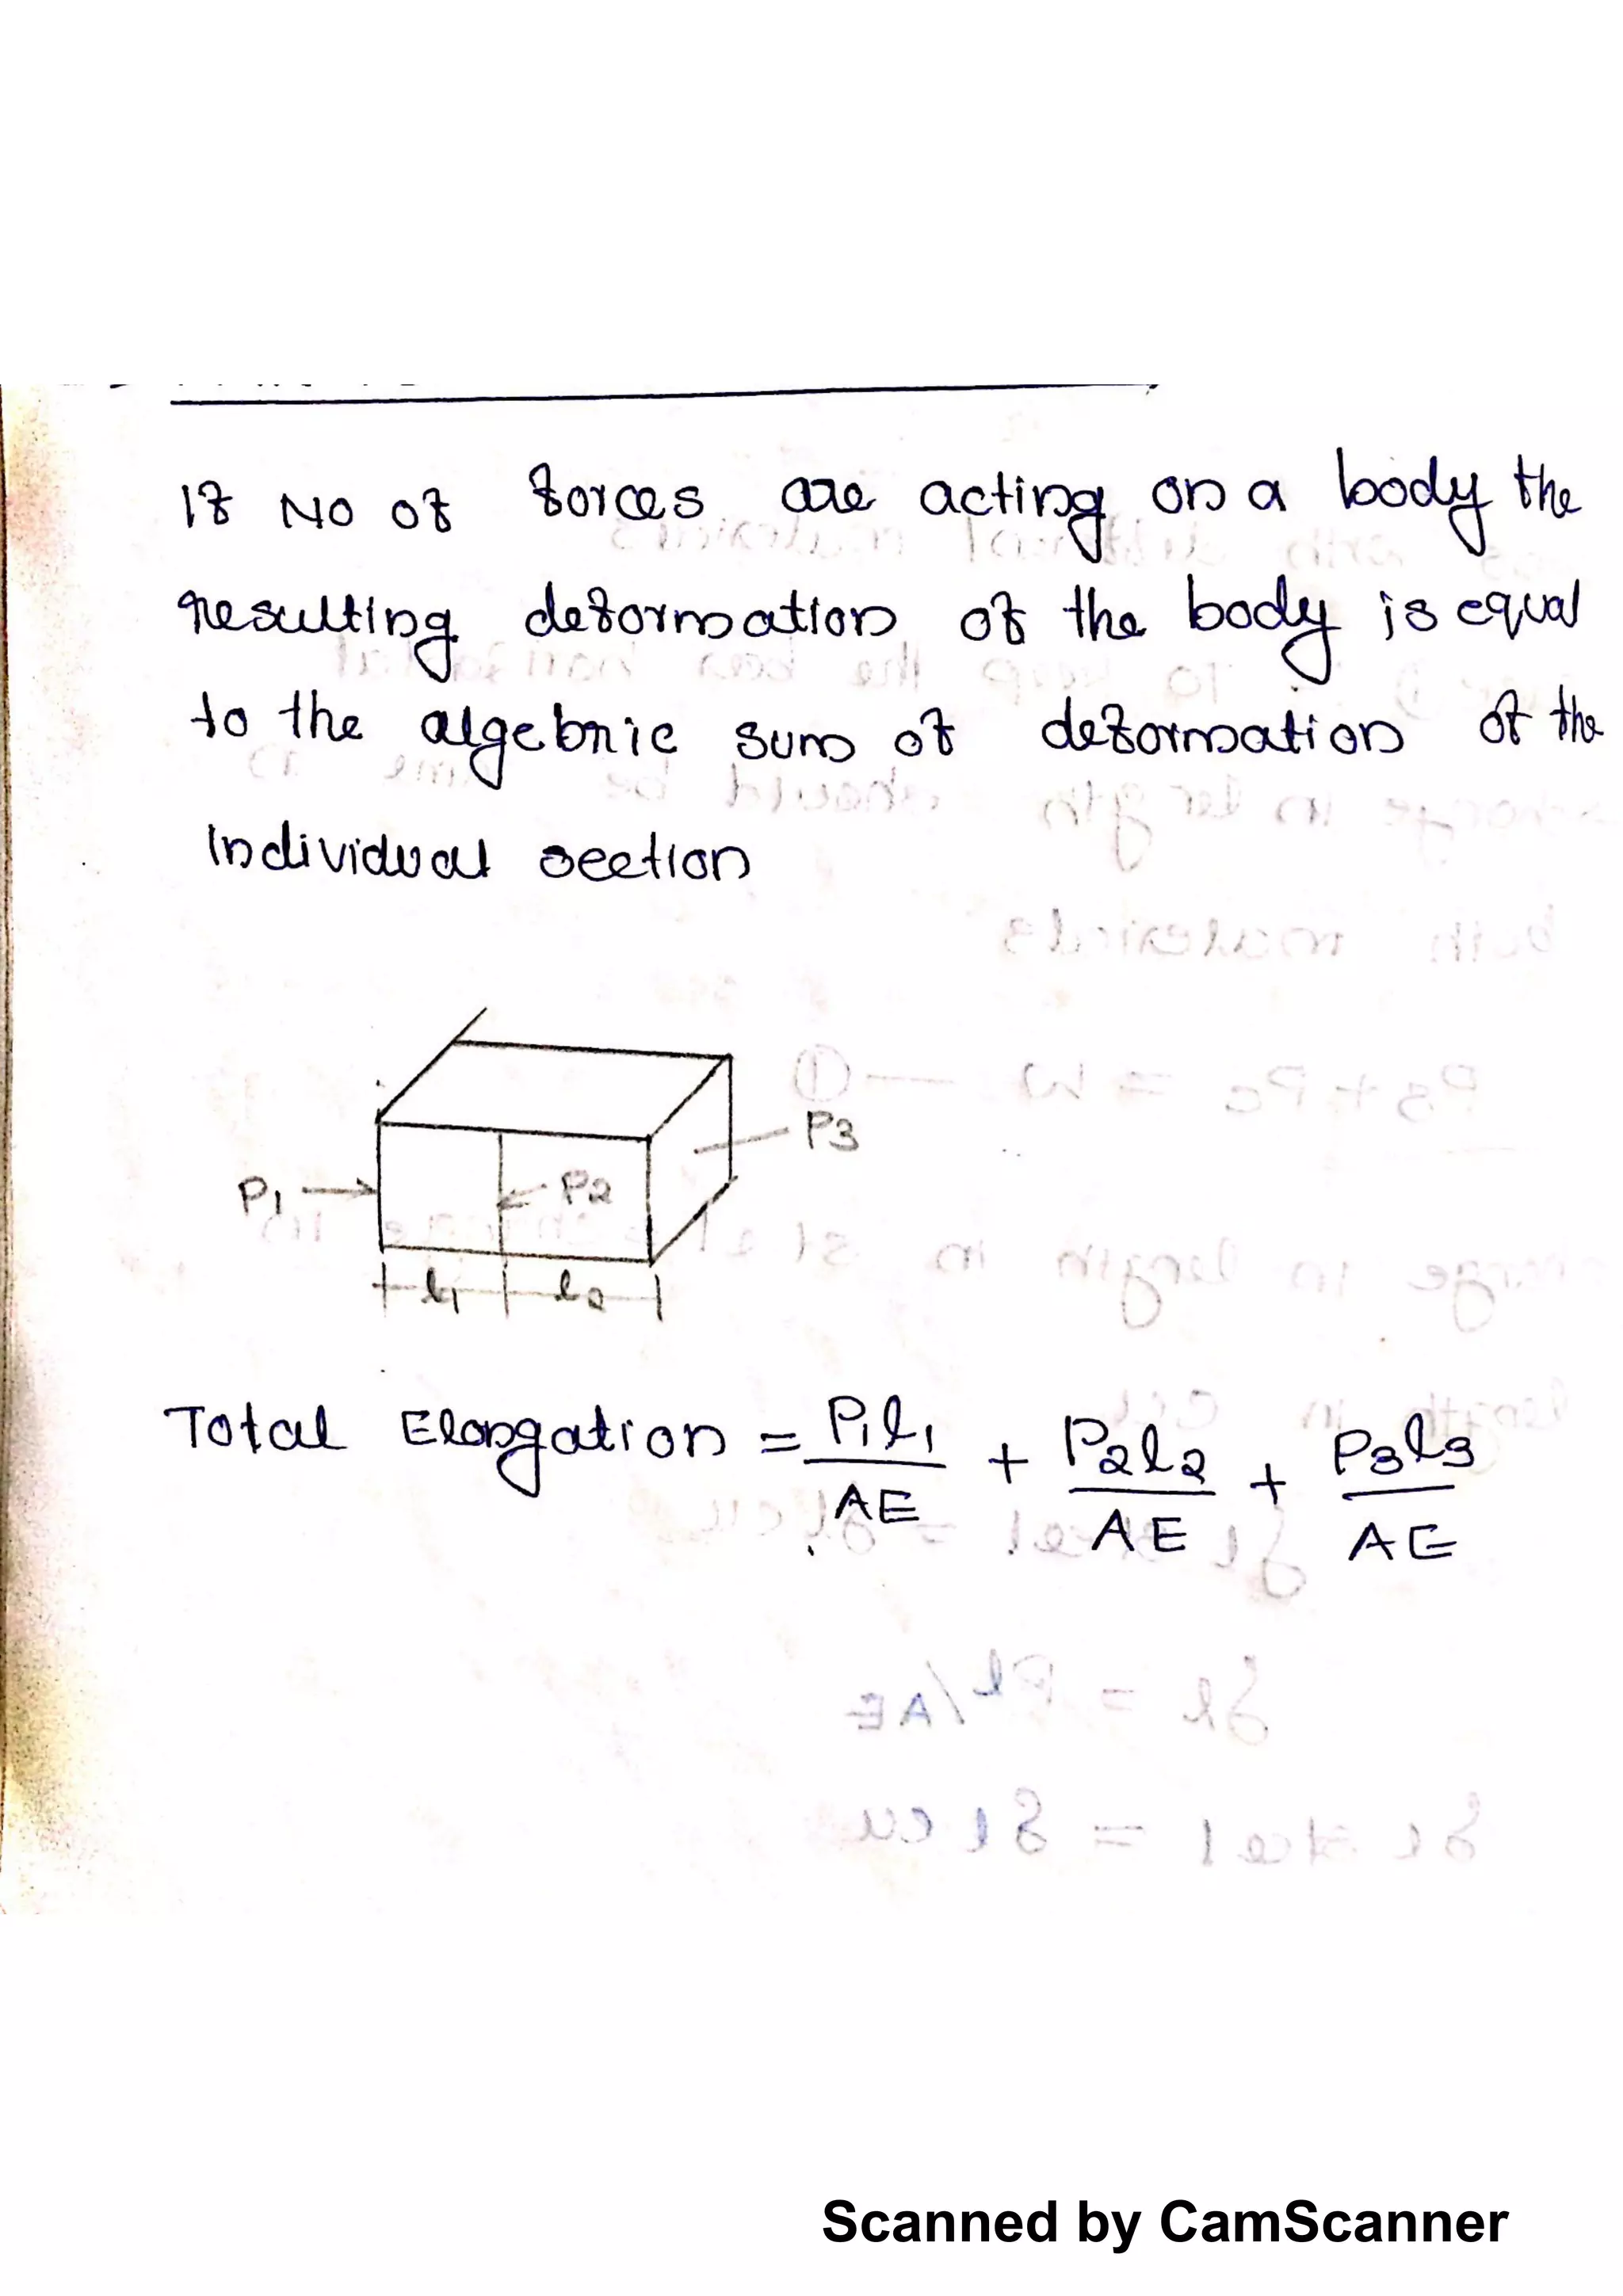 If No of forces are acting on a body the
resulting deformation of the body is equal
to the algebric sum of deformation of the
Individual section
P1
P2
P3
l1
l2
Total Elongation = P1l1/AE + P2l2/AE + P3l3/AE
Scanned by CamScanner